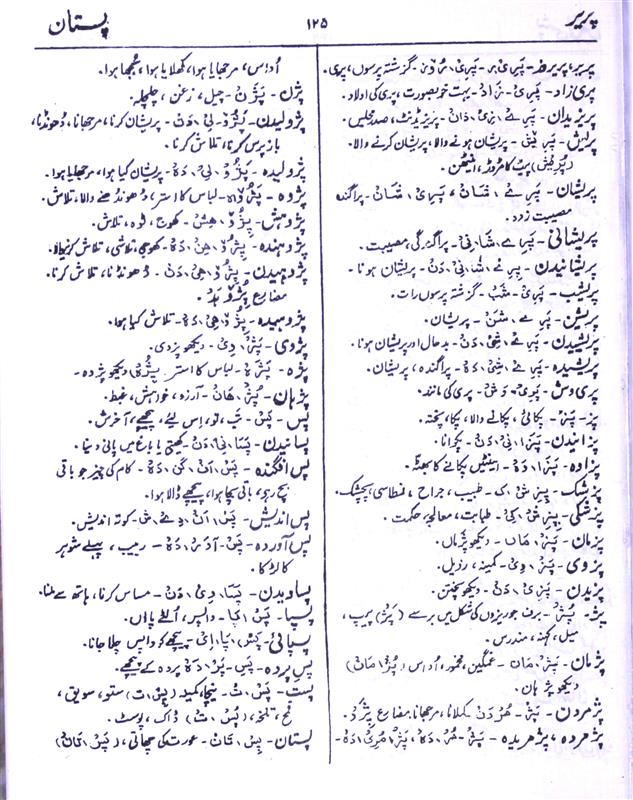 پریر
۱۲۵
پستان
پریر، پریروز۔ پَرِیْ ر۔ پَرِیْ، رُوْن۔ گزشتہ پرسوں، پری۔
پری زاد۔ پَرِیْ، زَادْ۔ بہت خوبصورت، پری کی اولاد۔
پریزیدان۔ پریزیڈنٹ، صدر مجلس۔
پریش۔ پَرِیْش۔ پریشان ہونے والا، پریشان کرنے والا۔
پیٹ کا مروڑ، اینٹھن۔
پریشان۔ پَرِے، شَانْ، پَرِیْ، شَانْ۔ پراگندہ
مصیبت زدہ۔
پریشانی۔ پَرِے، شَا، نِیْ۔ پراگندگی، مصیبت۔
پریشانیدن۔ پَرِے، شَا، نِیْ، دَنْ۔ پریشان ہونا۔
پریشب۔ پَرِیْ، شَبْ۔ گزشتہ پرسوں رات۔
پریشن۔ پَرِے، شَنْ۔ پریشان۔
پریشیدن۔ پَرِے، شِیْ، دَنْ۔ بدحال اور پریشان ہونا۔
پریشیدہ۔ پَرِے، شِیْ، دَہْ۔ پراگندہ، پریشان۔
پری وش۔ پَرِیْ، وَشْ۔ پری کی مانند۔
پز۔ پَزْ۔ پکائی، پکانے والا، پکا، پختہ۔
پزانیدن۔ پَزَا، نِیْ، دَنْ۔ پکوانا۔
پزاوہ۔ پَزَا، وَہْ۔ اینٹیں پکانے کا بھٹہ۔
پزشک۔ پِزِشْک۔ طبیب، جراح،
پزشکی۔ پِزِشْ، کِیْ۔ طبابت، معالجہ، حکمت۔
پزمان۔ پَزْ، مَان۔ دیکھو پژماں۔
پزوی۔ پَزْ، وِیْ۔ کمینہ، رذیل۔
پزیدن۔ پَزِیْ، دَنْ۔ دیکھو پختن۔
پژ۔ پُژْ۔ برف جو ریزوں کی شکل میں برسے (پَژْ) پیپ،
میل، کہنہ، مندرس۔
پژمان۔ پَژْ، مَان۔ غمگین، مخمور، اداس (پُژْ، مَانْ)
دیکھو پژہان۔
پژمردن۔ پَژْ، مُرْدَنْ۔ کملانا، مرجھانا۔ مضارع پژمرد۔
پژمردہ، پژمریدہ۔ پَژْ، مُرْ، دَہْ، پَژْ، مُرِیْ، دَہْ۔
اداس، مرجھایا ہوا، کھلایا ہوا، بُجھا ہوا۔
پژن۔ پَژَنْ۔ چیل، زغن، جلیچلہ۔
پژولیدن۔ پُژُوْ، لِیْ، دَنْ۔ پریشان کرنا، مرجھانا، ڈھونڈنا،
باز پرس کرنا، تلاش کرنا۔
پژولیدہ۔ پَژُوْ، لِیْ، دَہْ۔ پریشان کیا ہوا، مرجھایا ہوا۔
پژوہ۔ پَژُوْہ۔ لباس کا استر، ڈھونڈھنے والا، تلاش۔
پژوہش۔ پِژُوْ، ہِشْ۔ کھوج، ٹوہ، تلاش۔
پژوہندہ۔ کھوجی، تلاشی، تلاش کرنے والا۔
پژوہیدن۔ پِژُوْ، ہِیْ، دَنْ۔ ڈھونڈنا، تلاش کرنا۔
مضارع پژوہد۔
پژوہیدہ۔ پِژُوْ، ہِیْ، دَہْ۔ تلاش کیا ہوا۔
پژوی۔ پَژْ، وِیْ۔ دیکھو پزدی۔
پژہ۔ پَژَہْ۔ لباس کا استر۔ دیکھو پژدہ۔
پژہان۔ پُژْ، ھَانْ۔ آرزو، خواہش، غبط۔
پس۔ پَسْ۔ تب، تو، اس لیے، پیچھے، آخرش۔
پسانیدن۔ پَسَا، نِیْ، دَنْ۔ کھیتی یا باغ میں پانی دینا۔
پس افگندہ۔ پَسْ، اَفْ، گَنْ، دَہْ۔ کام کی چیز جو باقی
بچ رہی، باقی بچا ہوا، پیچھے ڈالا ہوا۔
پس اندیش۔ پَسْ، اَنْ، دِےْ، شْ۔ کوتہ اندیش۔
پس آوردہ۔ پَسْ، آوَرْ، دَہْ۔ ربیب، پہلے شوہر
کا لڑکا۔
پساویدن۔ پَسَا، وِیْ، دَنْ۔ مساس کرنا، ہاتھ سے ملنا۔
پسپا۔ پَسْ، پَا۔ واپس، الٹے پاؤں۔
پسپائی۔ پَسْ، پَا، اِیْ۔ پیچھے کو واپس چلا جانا۔
پس پردہ۔ پَسِ، پَرْ، دَہْ۔ پردہ کے پیچھے۔
پست۔ پَسْ، تْ۔ نیچا، کمینہ (پِسْ، ت) ستو، سویق،
تلخہ، (پُسْ، تْ) ڈاک، پوسٹ۔
پستان۔ پِسْ، تَانْ۔ عورت کی چھاتی، (پَسْ، تَانْ)